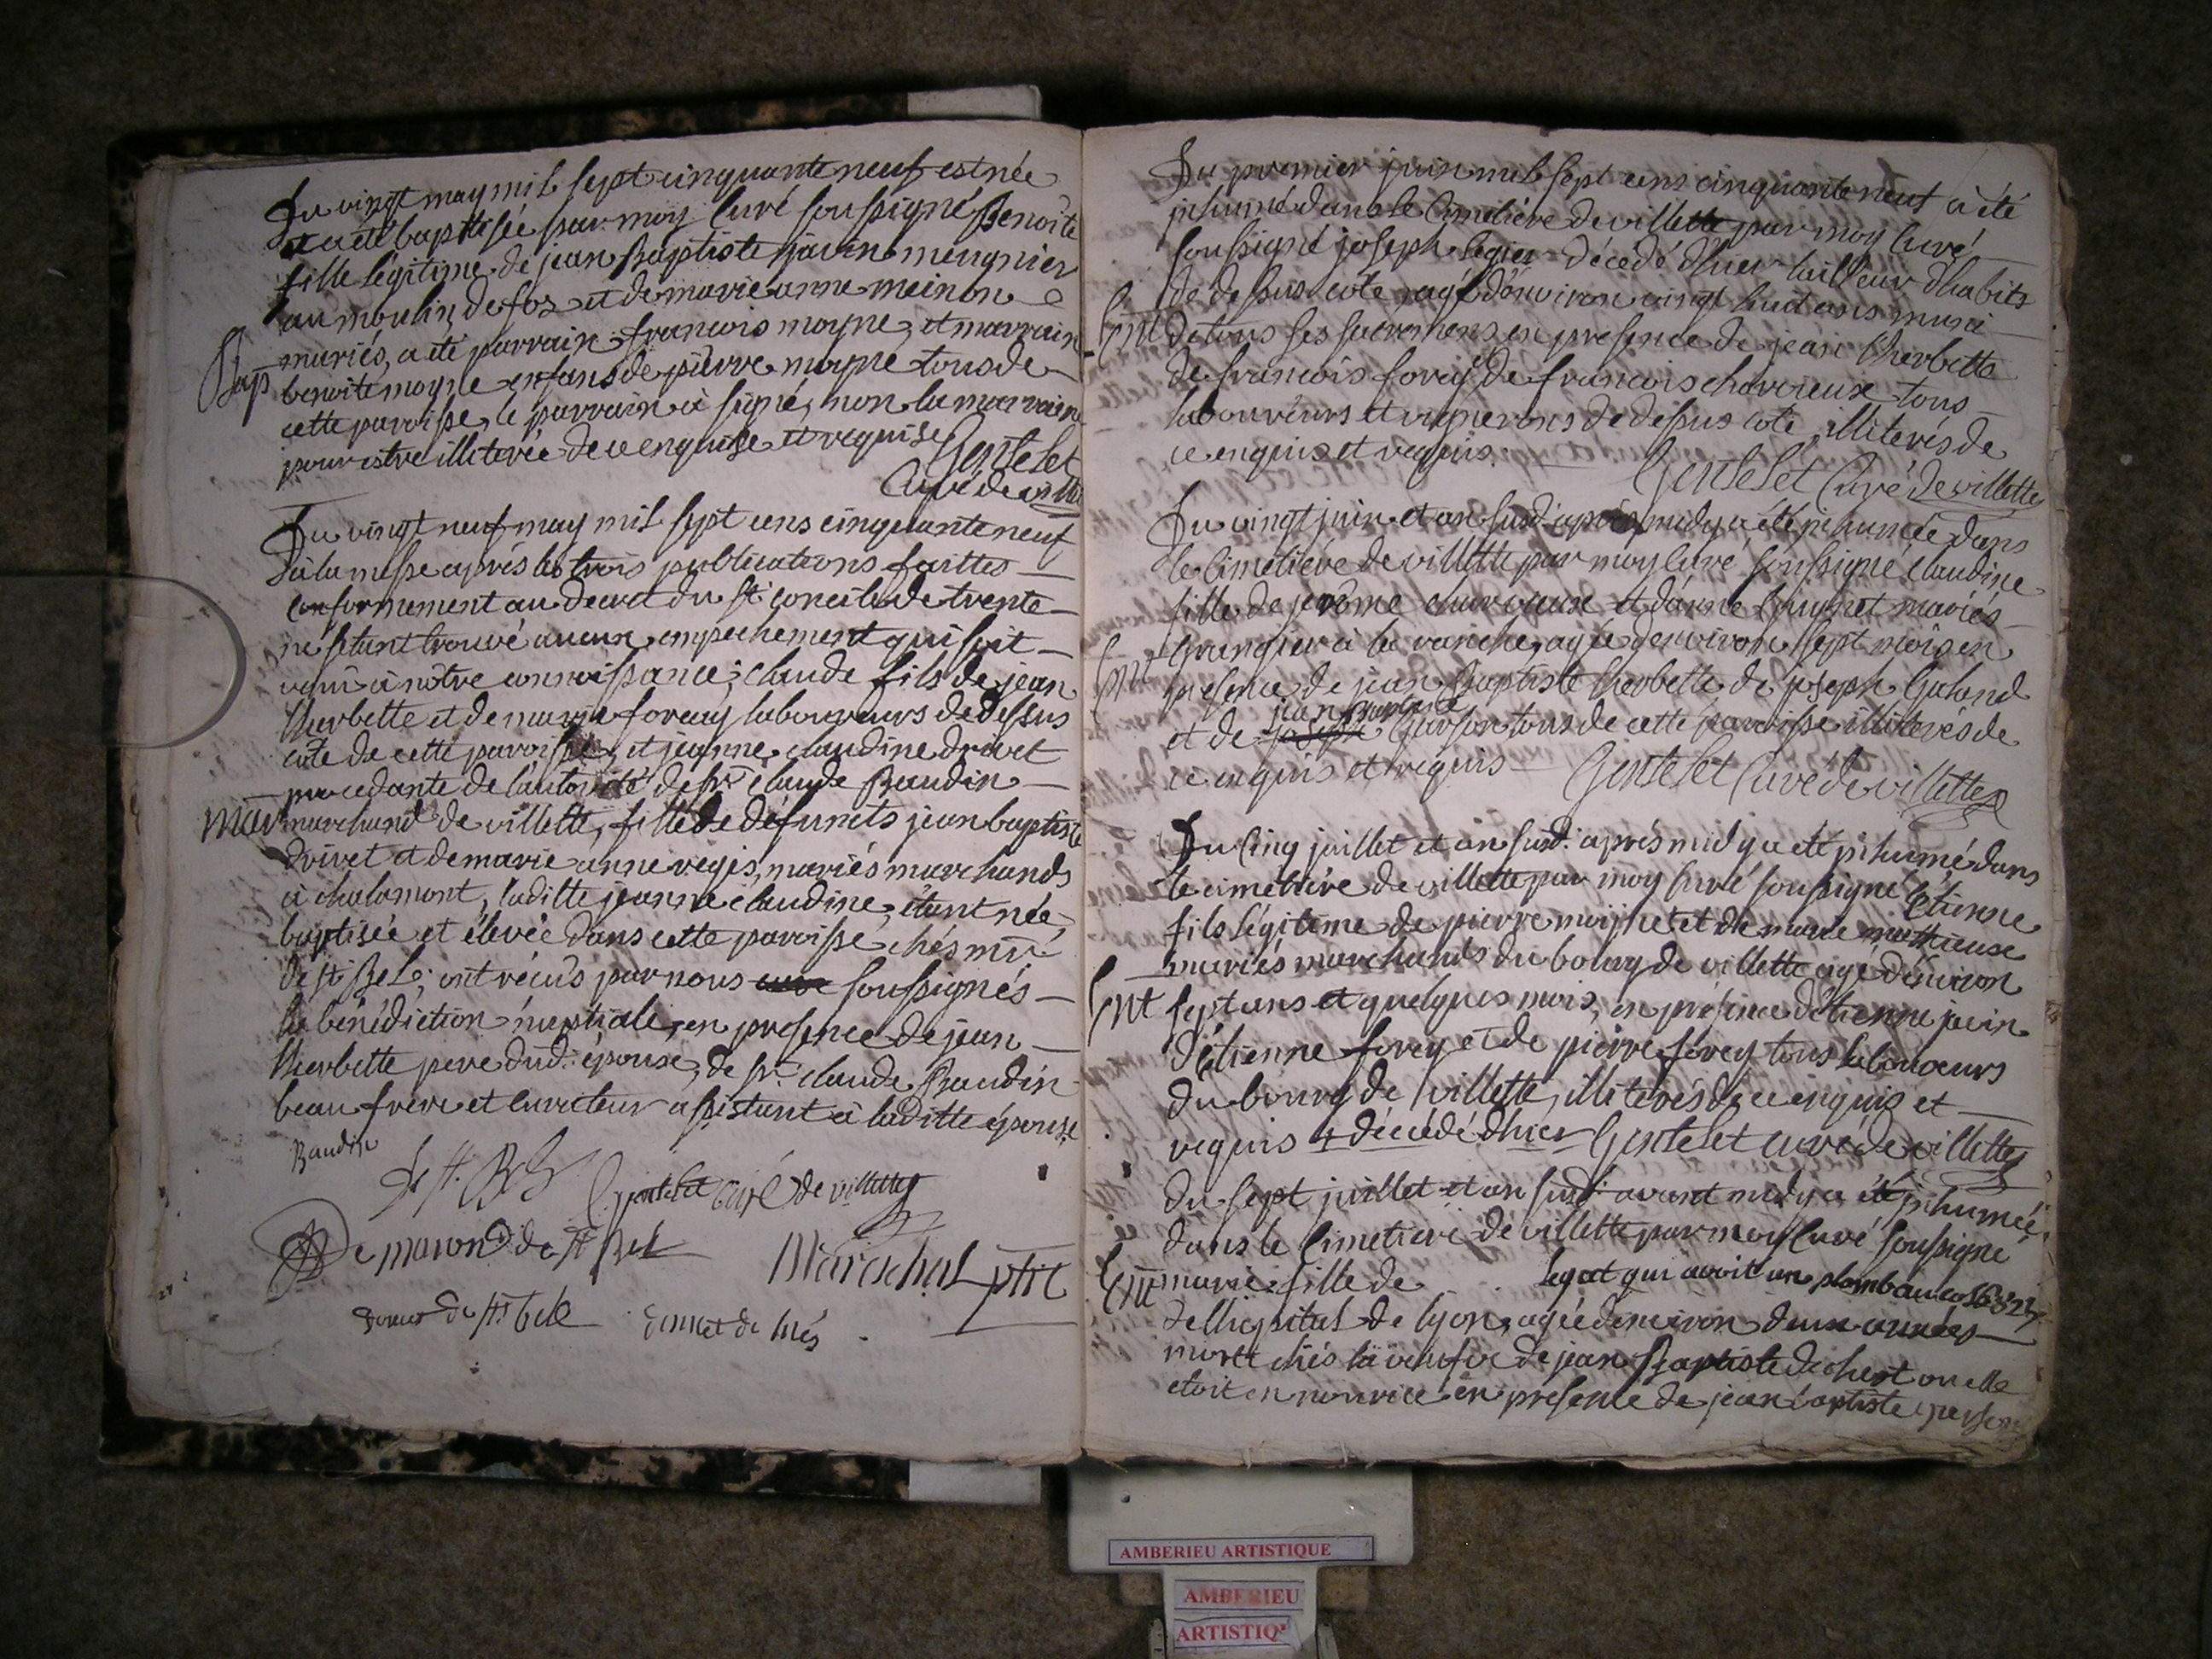 Du vingt may mil sept cinquante neuf est née
et a eté baptisée par moy Curé soussigné Benoite
fille légitime de jean Baptiste javin meugnier
au moulin de fos et de marie anne meinon
mariés, a eté parrain francois moyne, et marraine
Bap benoite moyne enfans de pierre moyne tous de
cette paroisse, le parrain à signé, non la marraine
pour estre illiterée de ce enquise et requise Gentelet
Curé de villette
Du vingt neuf may mil sept cens cinquante neuf
à la messe aprés les trois publications faittes
conformement au decret du st concile de trente
ne s'etant trouvé aucun empechement qui soit
venu à nôtre connoissance; claude fils de jean
therbette et de marie foray laboureurs de dessus
cote de cette paroisse, et jeanne claudine drivet
procedante de l'autorité de sr claude Baudin
mar marchand de villette, fille de défunts jean baptiste
drivet et de marie anne regis, mariés marchands
à chalamont, laditte jeanne claudine, étant née,
baptisée et élevée dans cette paroisse, chés mr
de st Bel; ont récus par nous curé soussignés
la bénédiction nuptiale, en presence de jean
therbette pere dud. épousé, de sr claude Baudin
beau frere et curateur assistant à laditte épouse
Baudin
de st. Bel Gentelet Curé de villette
De maron de st Bel Maréchal ptre
de st bel
Du premier juin mil sept cens cinquante neuf a été
inhumé dans le Cimetière de villette par moy Curé
soussigné joseph legier décédé d'hier tailleur d'habits
de dessus cote agé d'environ vingt huit ans muni
Ent de tous ses sacremens en presence de jean therbette
de francois foray et de francois charveyeux tous
laboureurs et vignerons de dessus cote, illiterés de
ce enquis et requis. Gentelet Curé de villette
Du vingt juin et an susd. aprés midy a été inhumée dans
le Cimetiére de villette par moy Curé soussigné claudine
fille de jerôme et d'anne mariés
Granger à la ranche, agée d'environ sept mois en
Ent presence de jean Baptiste therbette de joseph Galand
jean baptiste
et de joseph Garson tous de cette paroisse illiterés de
ce enquis et requis Gentelet Curé de villette
Du Cinq juillet et an susd. aprés midy a été inhumé dans
le cimetiére de villette par moy Curé soussigné étienne
fils légitime de pierre moyne et de marie
mariés marchands du bourg de villette agé d'environ
Ent sept ans et quelques mois, en présence d'étienne juvin
d'étienne forey et de pierre forey tous laboureurs
du bourg de villette, illiterés de ce enquis et
requis décédé d'hier Gentelet curé de villette
Du sept juillet et an susd. avant midy a été inhumée
dans le Cimetiere de villette par moy Curé soussigné
Ent marie fille de legat qui avoit un plomb au col
de l'hopital de lyon, agée d'environ deux années
morte chés la veufve de jean Baptiste ou elle
etoit en nourice en presence de jean baptiste garson
AMBERIEU ARTISTIQUE
AMBERIEU
ARTISTIQ